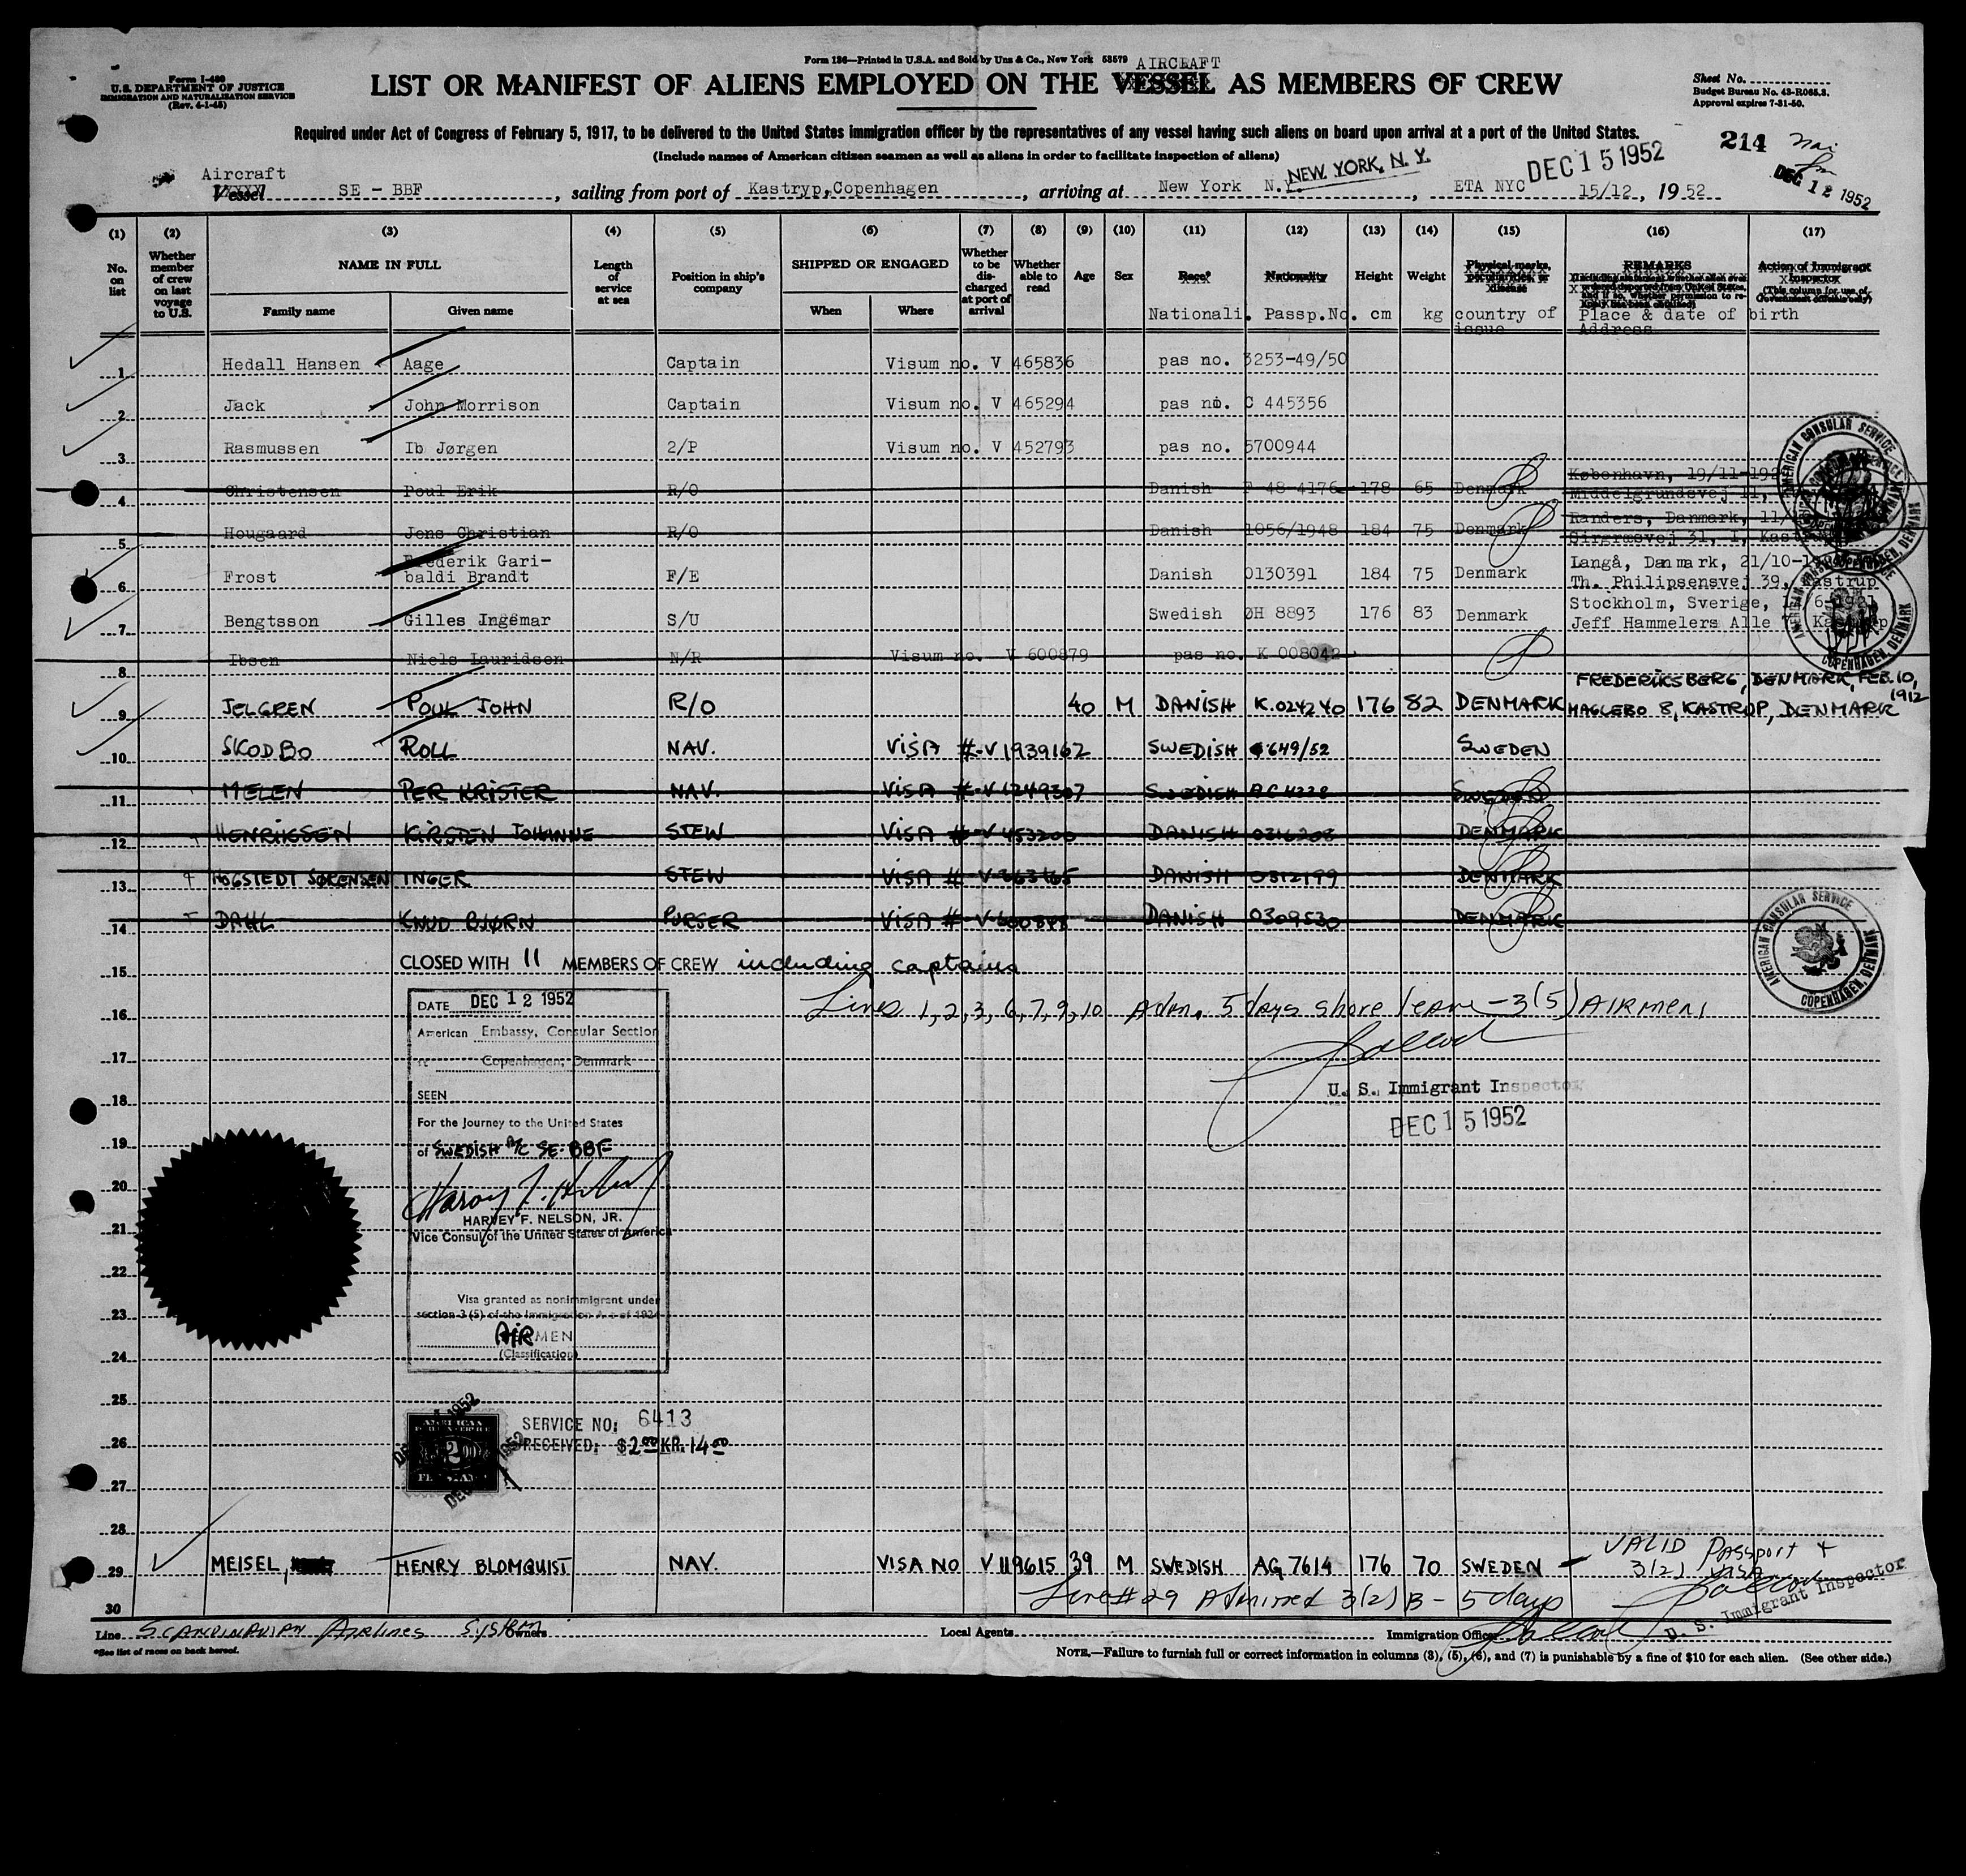 Form I-480
U.S. DEPARTMENT OF JUSTICE
IMMIGRATION AND NATURALIZATION SERVICE
(Rev. 4-1-48)
Form 136—Printed in U.S.A. and Sold by Unz & Co., New York 58579
AIRCRAFT
LIST OR MANIFEST OF ALIENS EMPLOYED ON THE VESSEL AS MEMBERS OF CREW
Sheet No.
Budget Bureau No. 43-R065.3.
Approval expires 7-31-50.
Required under Act of Congress of February 5, 1917, to be delivered to the United States immigration officer by the representatives of any vessel having such aliens on board upon arrival at a port of the United States.
(Include names of American citizen seamen as well as aliens in order to facilitate inspection of aliens)
214
DEC 12 1952
NEW YORK, N. Y.
DEC 15 1952
Aircraft
Vessel SE - BBF, sailing from port of Kastryp,Copenhagen, arriving at New York N.Y., ETA NYC 15/12, 1952
(1) (2) (3) (4) (5) (6) (7) (8) (9) (10) (11) (12) (13) (14) (15) (16) (17)
No. on list
Whether member of crew on last voyage to U.S.
NAME IN FULL
Family name Given name
Length of service at sea
Position in ship's company
SHIPPED OR ENGAGED
When Where
Whether to be discharged at port of arrival
Whether able to read
Age Sex Race* Nationality Height Weight
Physical marks, peculiarities, or disease
REMARKS
Action of Immigrant Inspector
(This column for use of Government officials only)
Nationali. Passp.No. cm kg country of issue Place & date of birth Address
1 Hedall Hansen Aage Captain Visum no. V 465836 pas no. 3253-49/50
2 Jack John Morrison Captain Visum no. V 465294 pas no. C 445356
3 Rasmussen Ib Jørgen 2/P Visum no. V 452793 pas no. 5700944
København, 19/11-192
4 Christensen Poul Erik R/O Danish F 48-4176 178 65 Denmark Middelgrundsvej 11,
Randers, Danmark, 11/
5 Hougaard Jens Christian R/O Danish 1056/1948 184 75 Denmark Sirgræsvej 31, I, Kastrup
Frederik Gari- Langå, Danmark, 21/10-1
6 Frost baldi Brandt F/E Danish 0130391 184 75 Denmark Th. Philipsensvej 39, Kastrup
Stockholm, Sverige,
7 Bengtsson Gilles Ingemar S/U Swedish ØH 8893 176 83 Denmark Jeff Hammelers Alle 7, Kastrup
8 Ibsen Niels Lauridsen N/R Visum no. V 600879 pas no. K 008042
FREDERIKSBERG, DENMARK, FEB. 10, 1912
9 JELGREN POUL JOHN R/O 40 M DANISH K.024240 176 82 DENMARK HAGLEBO 8, KASTRUP, DENMARK
10 SKODBO ROLL NAV. VISA #-V1939162 SWEDISH 649/52 SWEDEN
11 MELEN PER KRISTER NAV. VISA #-V1249307 SWEDISH AC4228 SWEDEN
12 HENRIKSEN KIRSTEN JOHANNE STEW VISA #-V453200 DANISH 0316208 DENMARK
13 HOGSTEDT SØRENSEN INGER STEW VISA # V 663465 DANISH 0312199 DENMARK
14 DAHL KNUD BJØRN PURSER VISA # V DANISH 0309530 DENMARK
15 CLOSED WITH 11 MEMBERS OF CREW including captains
16 Lines 1, 2, 3, 6, 7, 9, 10 Adm. 5 days shore leave - 3(5) AIRMEN
17
18 U. S. Immigrant Inspector
DEC 15 1952
19
20
21
22
23
24
25
26
27
28
DATE DEC 12 1952
American Embassy, Consular Section
at Copenhagen, Denmark
SEEN
For the Journey to the United States
of SWEDISH A/C SE-BBF
HARVEY F. NELSON, JR.
Vice Consul of the United States of America
Visa granted as nonimmigrant under
section 3 (5) of the Immigration Act of 1924
AIRMEN
(Classification)
SERVICE NO: 6413
RECEIVED: $2.00 KR. 14.00
AMERICAN CONSULAR SERVICE
COPENHAGEN, DENMARK
29 MEISEL, HENRY BLOMQUIST NAV. VISA NO V119615 39 M SWEDISH AG 7614 176 70 SWEDEN - VALID Passport + 3(2) VISA
U. S. Immigrant Inspector
30 Line # 29 Admitted 3(2) B - 5 days
Line SCANDINAVIAN AIRLINES SYSTEM Owners Local Agents Immigration Officer
*See list of races on back hereof.
NOTE.—Failure to furnish full or correct information in columns (3), (5), (6), and (7) is punishable by a fine of $10 for each alien. (See other side.)